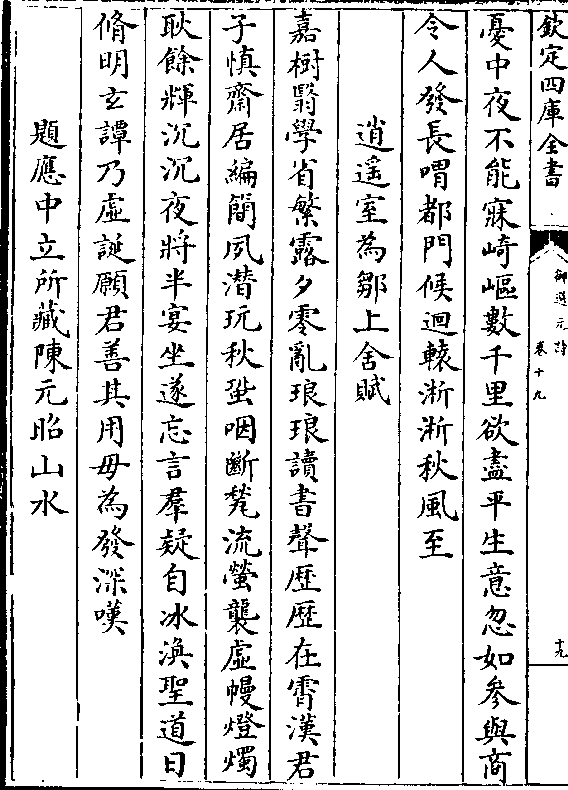 欽定四庫全書
御選元詩
卷十九
十九
憂中夜不能寐崎嶇數千里欲盡平生意忽如參與商
令人發長喟都門候迴轅淅淅秋風至
逍遙室為鄒上舍賦
嘉樹翳學省繁露夕零亂琅琅讀書聲歷歷在霄漢君
子慎齋居編簡夙潛玩秋蛩咽斷甃流螢襲虛幔燈燭
耿餘輝沉沉夜將半宴坐遂忘言羣疑自冰渙聖道日
脩明玄譚乃虛誕願君善其用毋為發深嘆
題應中立所藏陳元昭山水